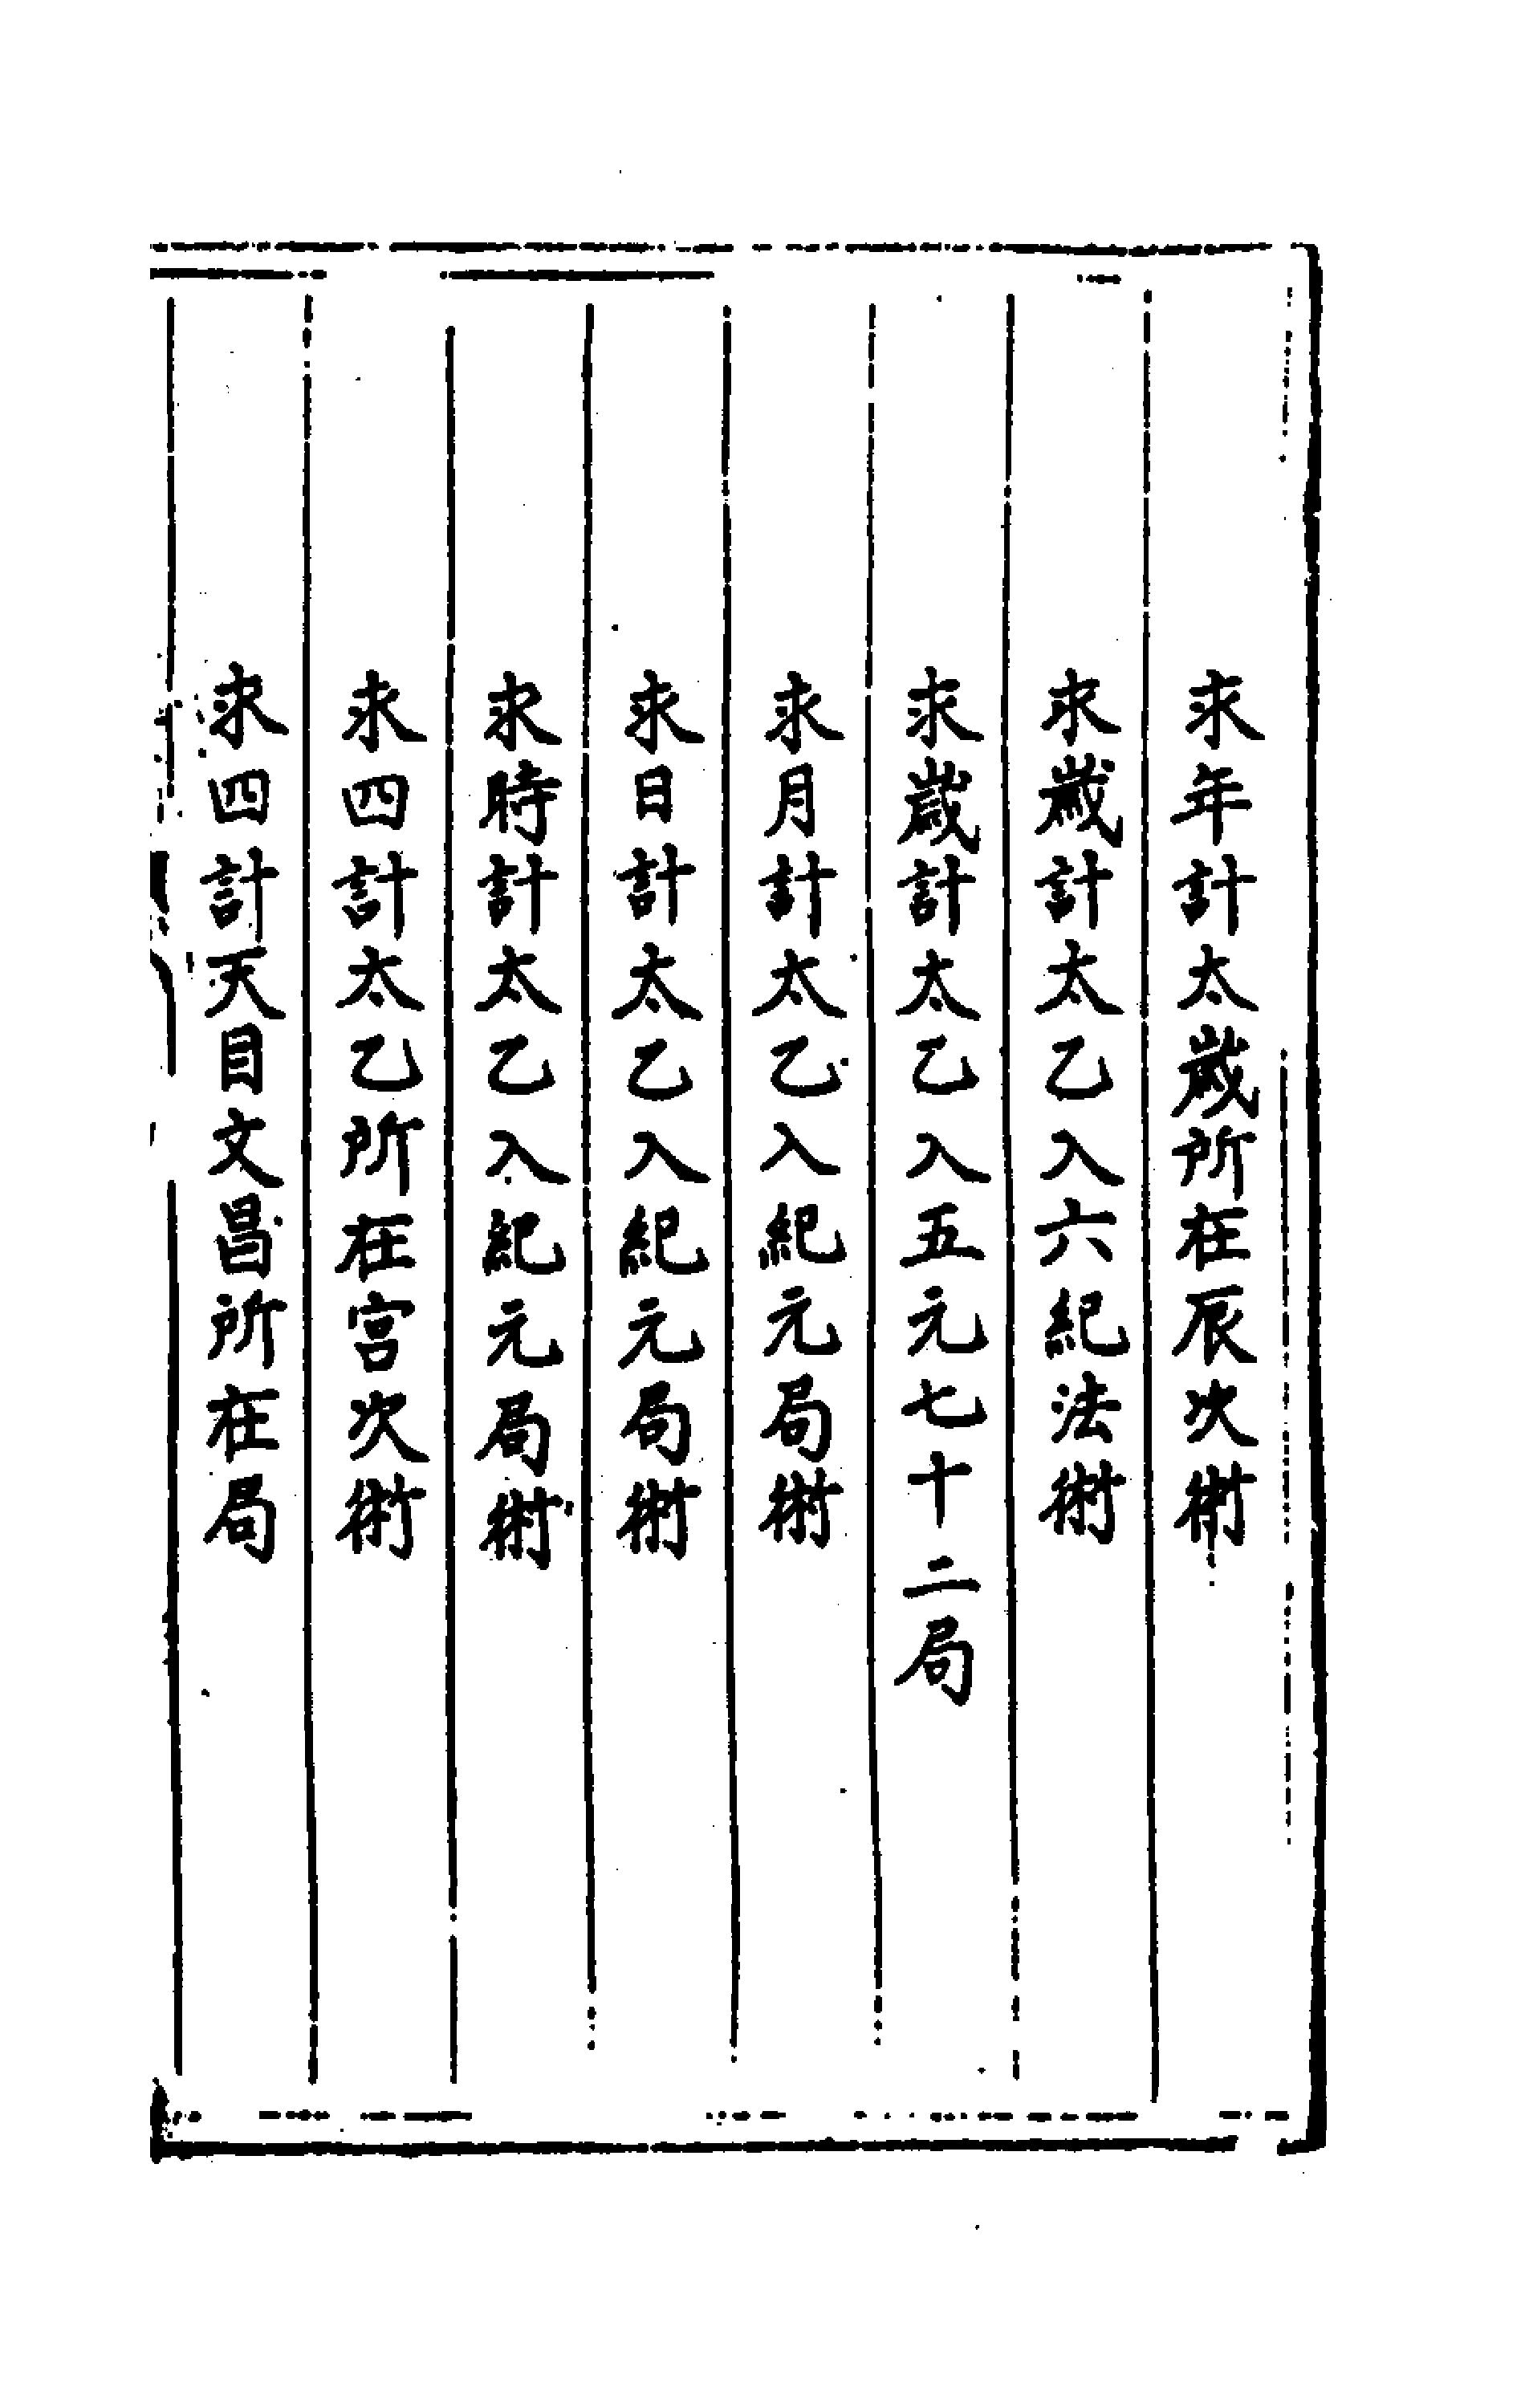 求年計太歲所在辰次術
求歲計太乙入六紀法術
求歲計太乙入五元七十二局
求月計太乙入紀元局術
求日計太乙入紀元局術
求時計太乙入紀元局術
求四計太乙所在宮次術
求四計天目文昌所在局